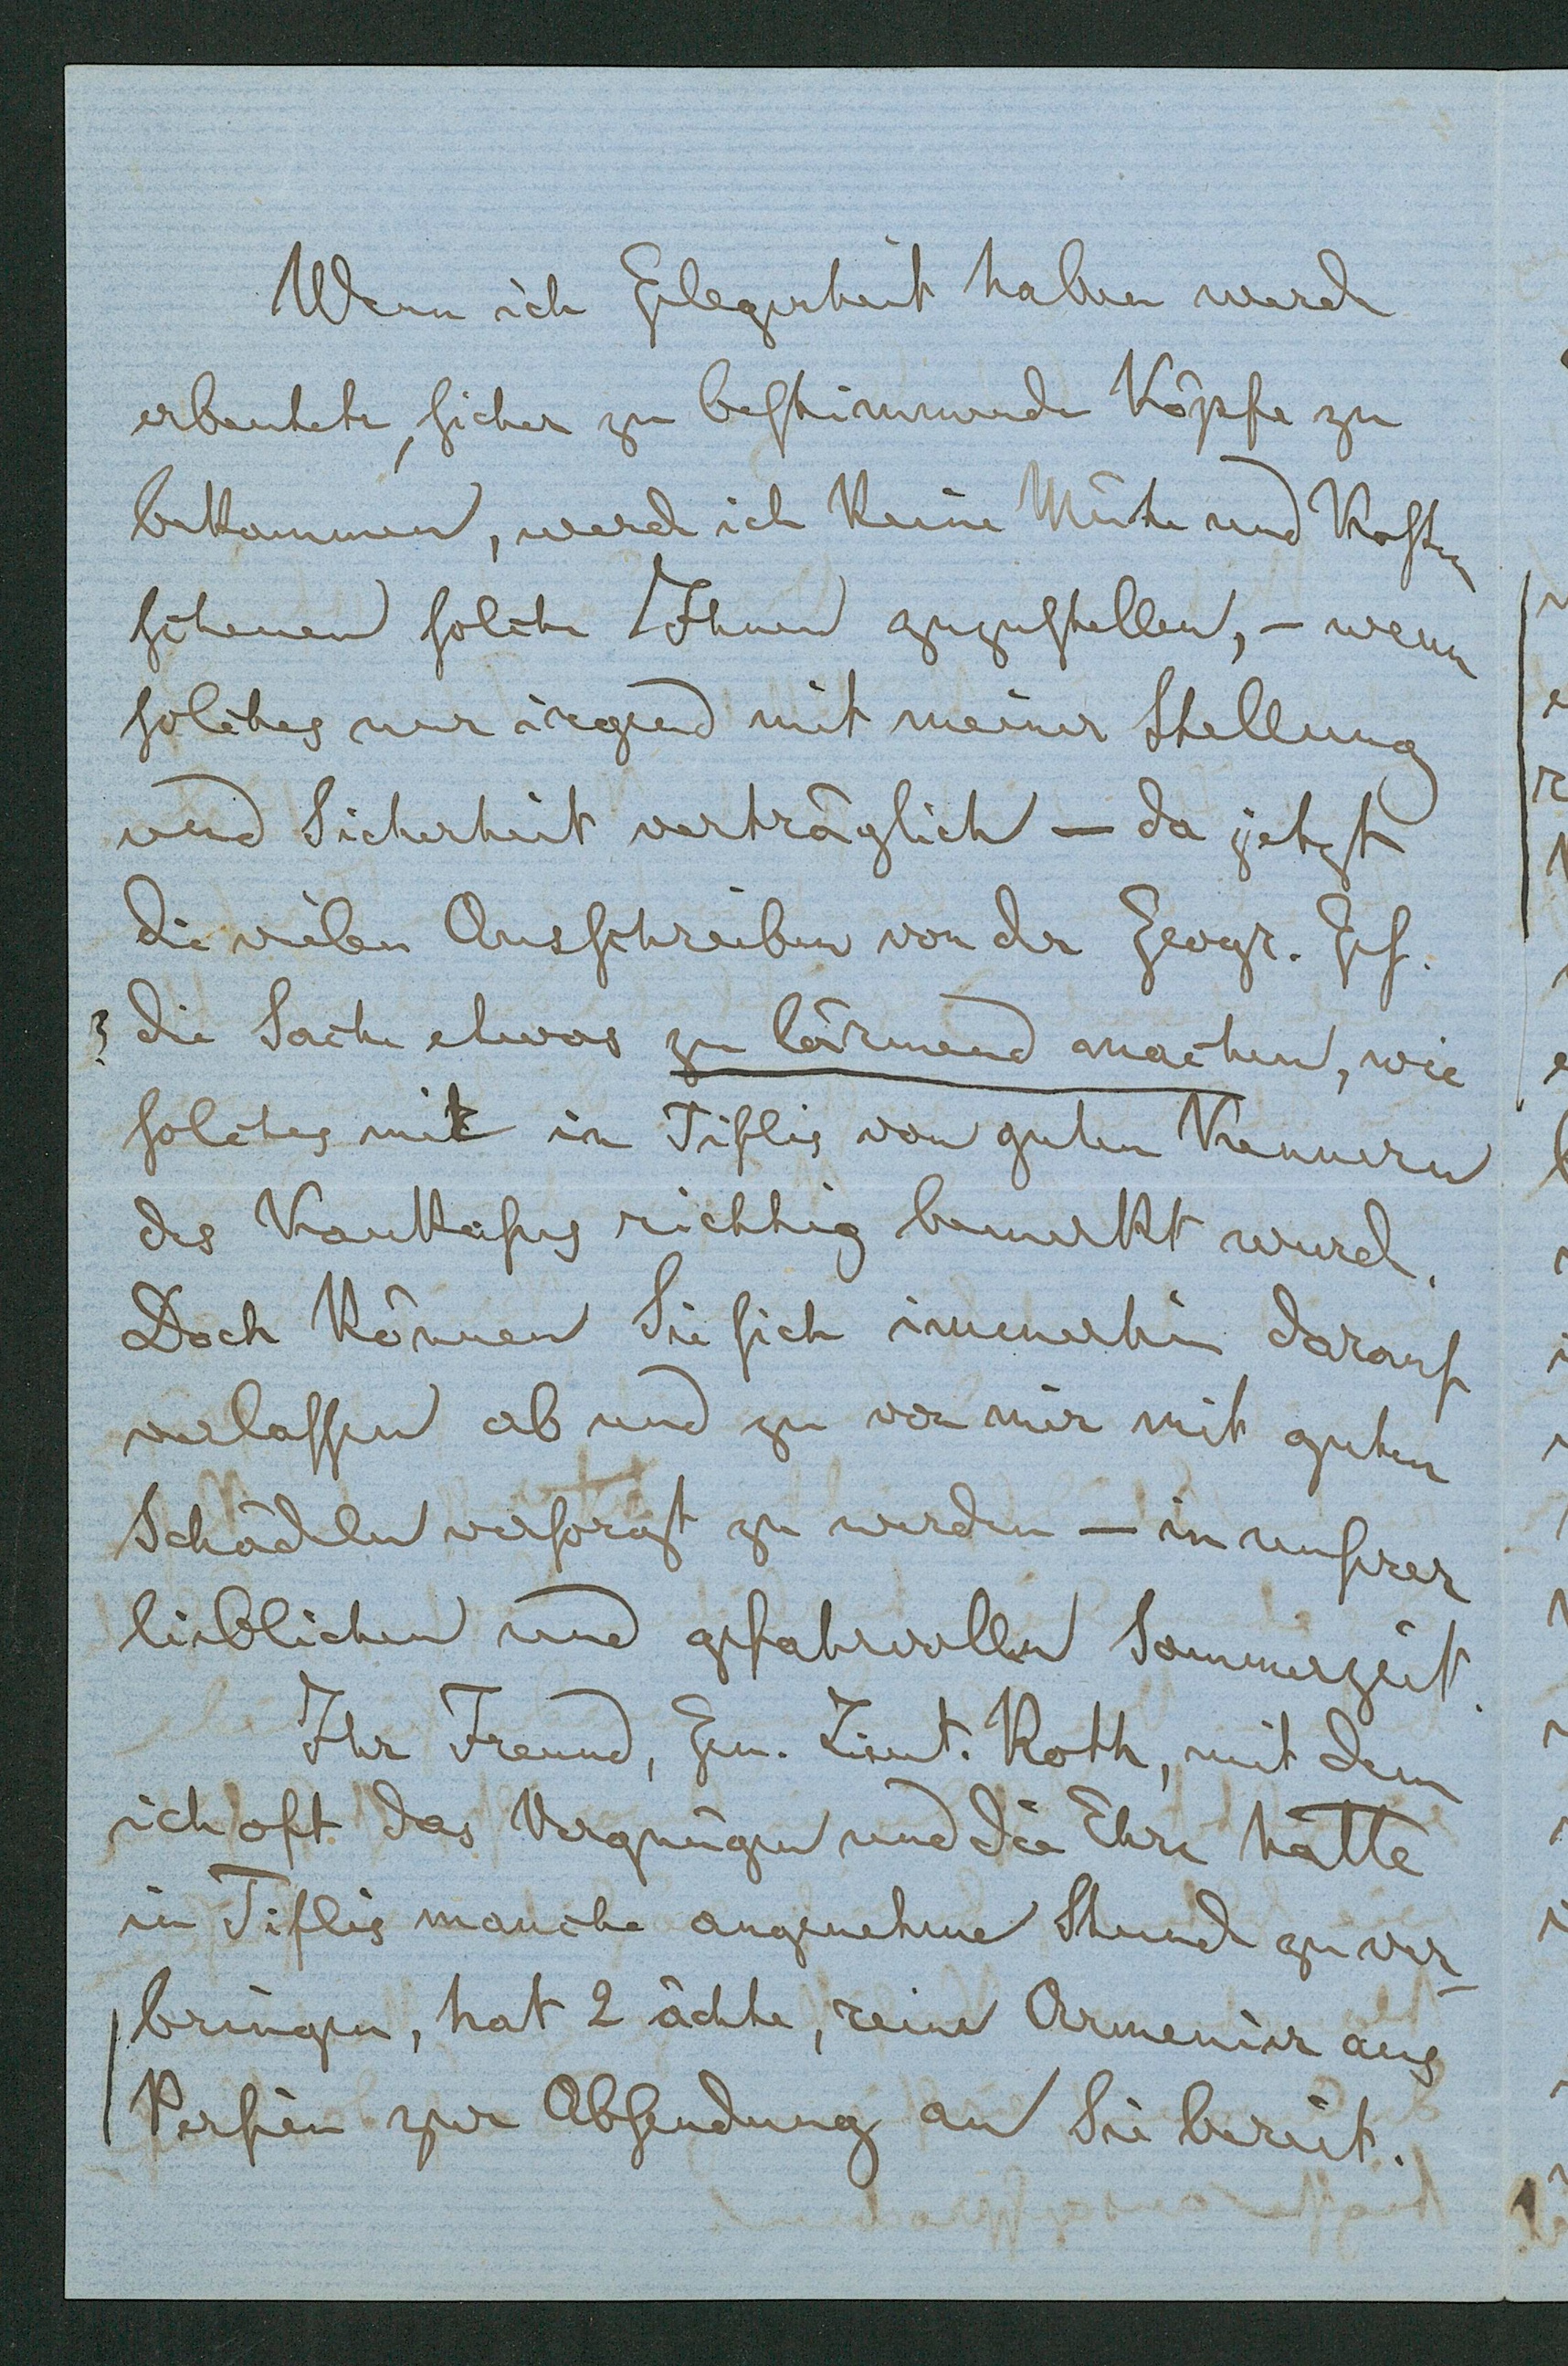 Wenn ich Gelegenheit haben werde
erbeutete, sicher zu bestimmende Köpfe zu
bekommen, werde ich keine Mühe und Kosten
scheuen solche Ihnen zuzustellen, – wenn
solches nur irgend mit meiner Stellung
und Sicherheit verträglich – da jetzt
die vielen Ausschreiben von der Geogr. Ges.
? die Sache etwas zu lärmend machen, wie
solches mir in Tiflis von guten Kennern
des Kaukasus richtig bemerkt wurde.
Doch können Sie sich immerhin darauf
verlassen ab und zu von mir mit guten
Schädeln versorgt zu werden – in unsrer
lieblichen und gefahrvollen Sommerzeit.
Ihr Freund, Gen. Lieut. Roth, mit dem
ich oft das Vergnügen und die Ehre hatte
in Tiflis manche angenehme Stunde zu ver-
bringen, hat 2 ächte, reine Armenier aus
Persien zur Absendung an Sie bereit.